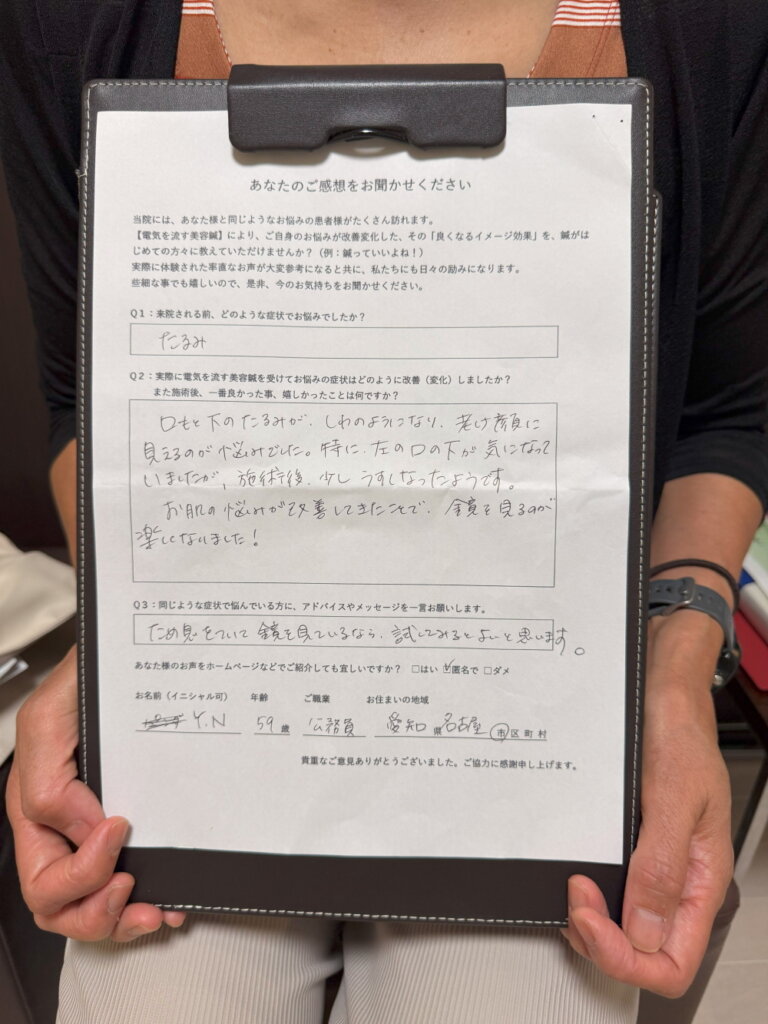 あなたのご感想をお聞かせください
当院には、あなた様と同じようなお悩みの患者様がたくさん訪れます。
【電気を流す美容鍼】により、ご自身のお悩みが改善変化した、その「良くなるイメージ効果」を、鍼がは
じめての方々に教えていただけませんか?(例:鍼っていいよね!)
実際に体験された率直なお声が大変参考になると共に、私たちにも日々の励みになります。
些細な事でも嬉しいので、是非、今のお気持ちをお聞かせください。
Q1:来院される前、どのような症状でお悩みでしたか?
たるみ
Q2:実際に電気を流す美容鍼を受けてお悩みの症状はどのように改善(変化)しましたか?
また施術後、一番良かった事、嬉しかったことは何ですか?
口もと下のたるみが、しわのようになり、老け顔に
見えるのが悩みでした。特に、左の口の下が気になって
いましたが、施術後、少しうすくなったようです。
お肌の悩みが改善してきたことで、鏡を見るのが
楽しくなりました!
Q3:同じような症状で悩んでいる方に、アドバイスやメッセージを一言お願いします。
ため息をついて鏡を見ているなら、試してみるとよいと思います。
あなた様のお声をホームページなどでご紹介しても宜しいですか? □はい ☑匿名で □ダメ
お名前(イニシャル可) 年齢 ご職業 お住まいの地域
Y.N 59歳 公務員 愛知県名古屋市区町村
貴重なご意見ありがとうございました。ご協力に感謝申し上げます。